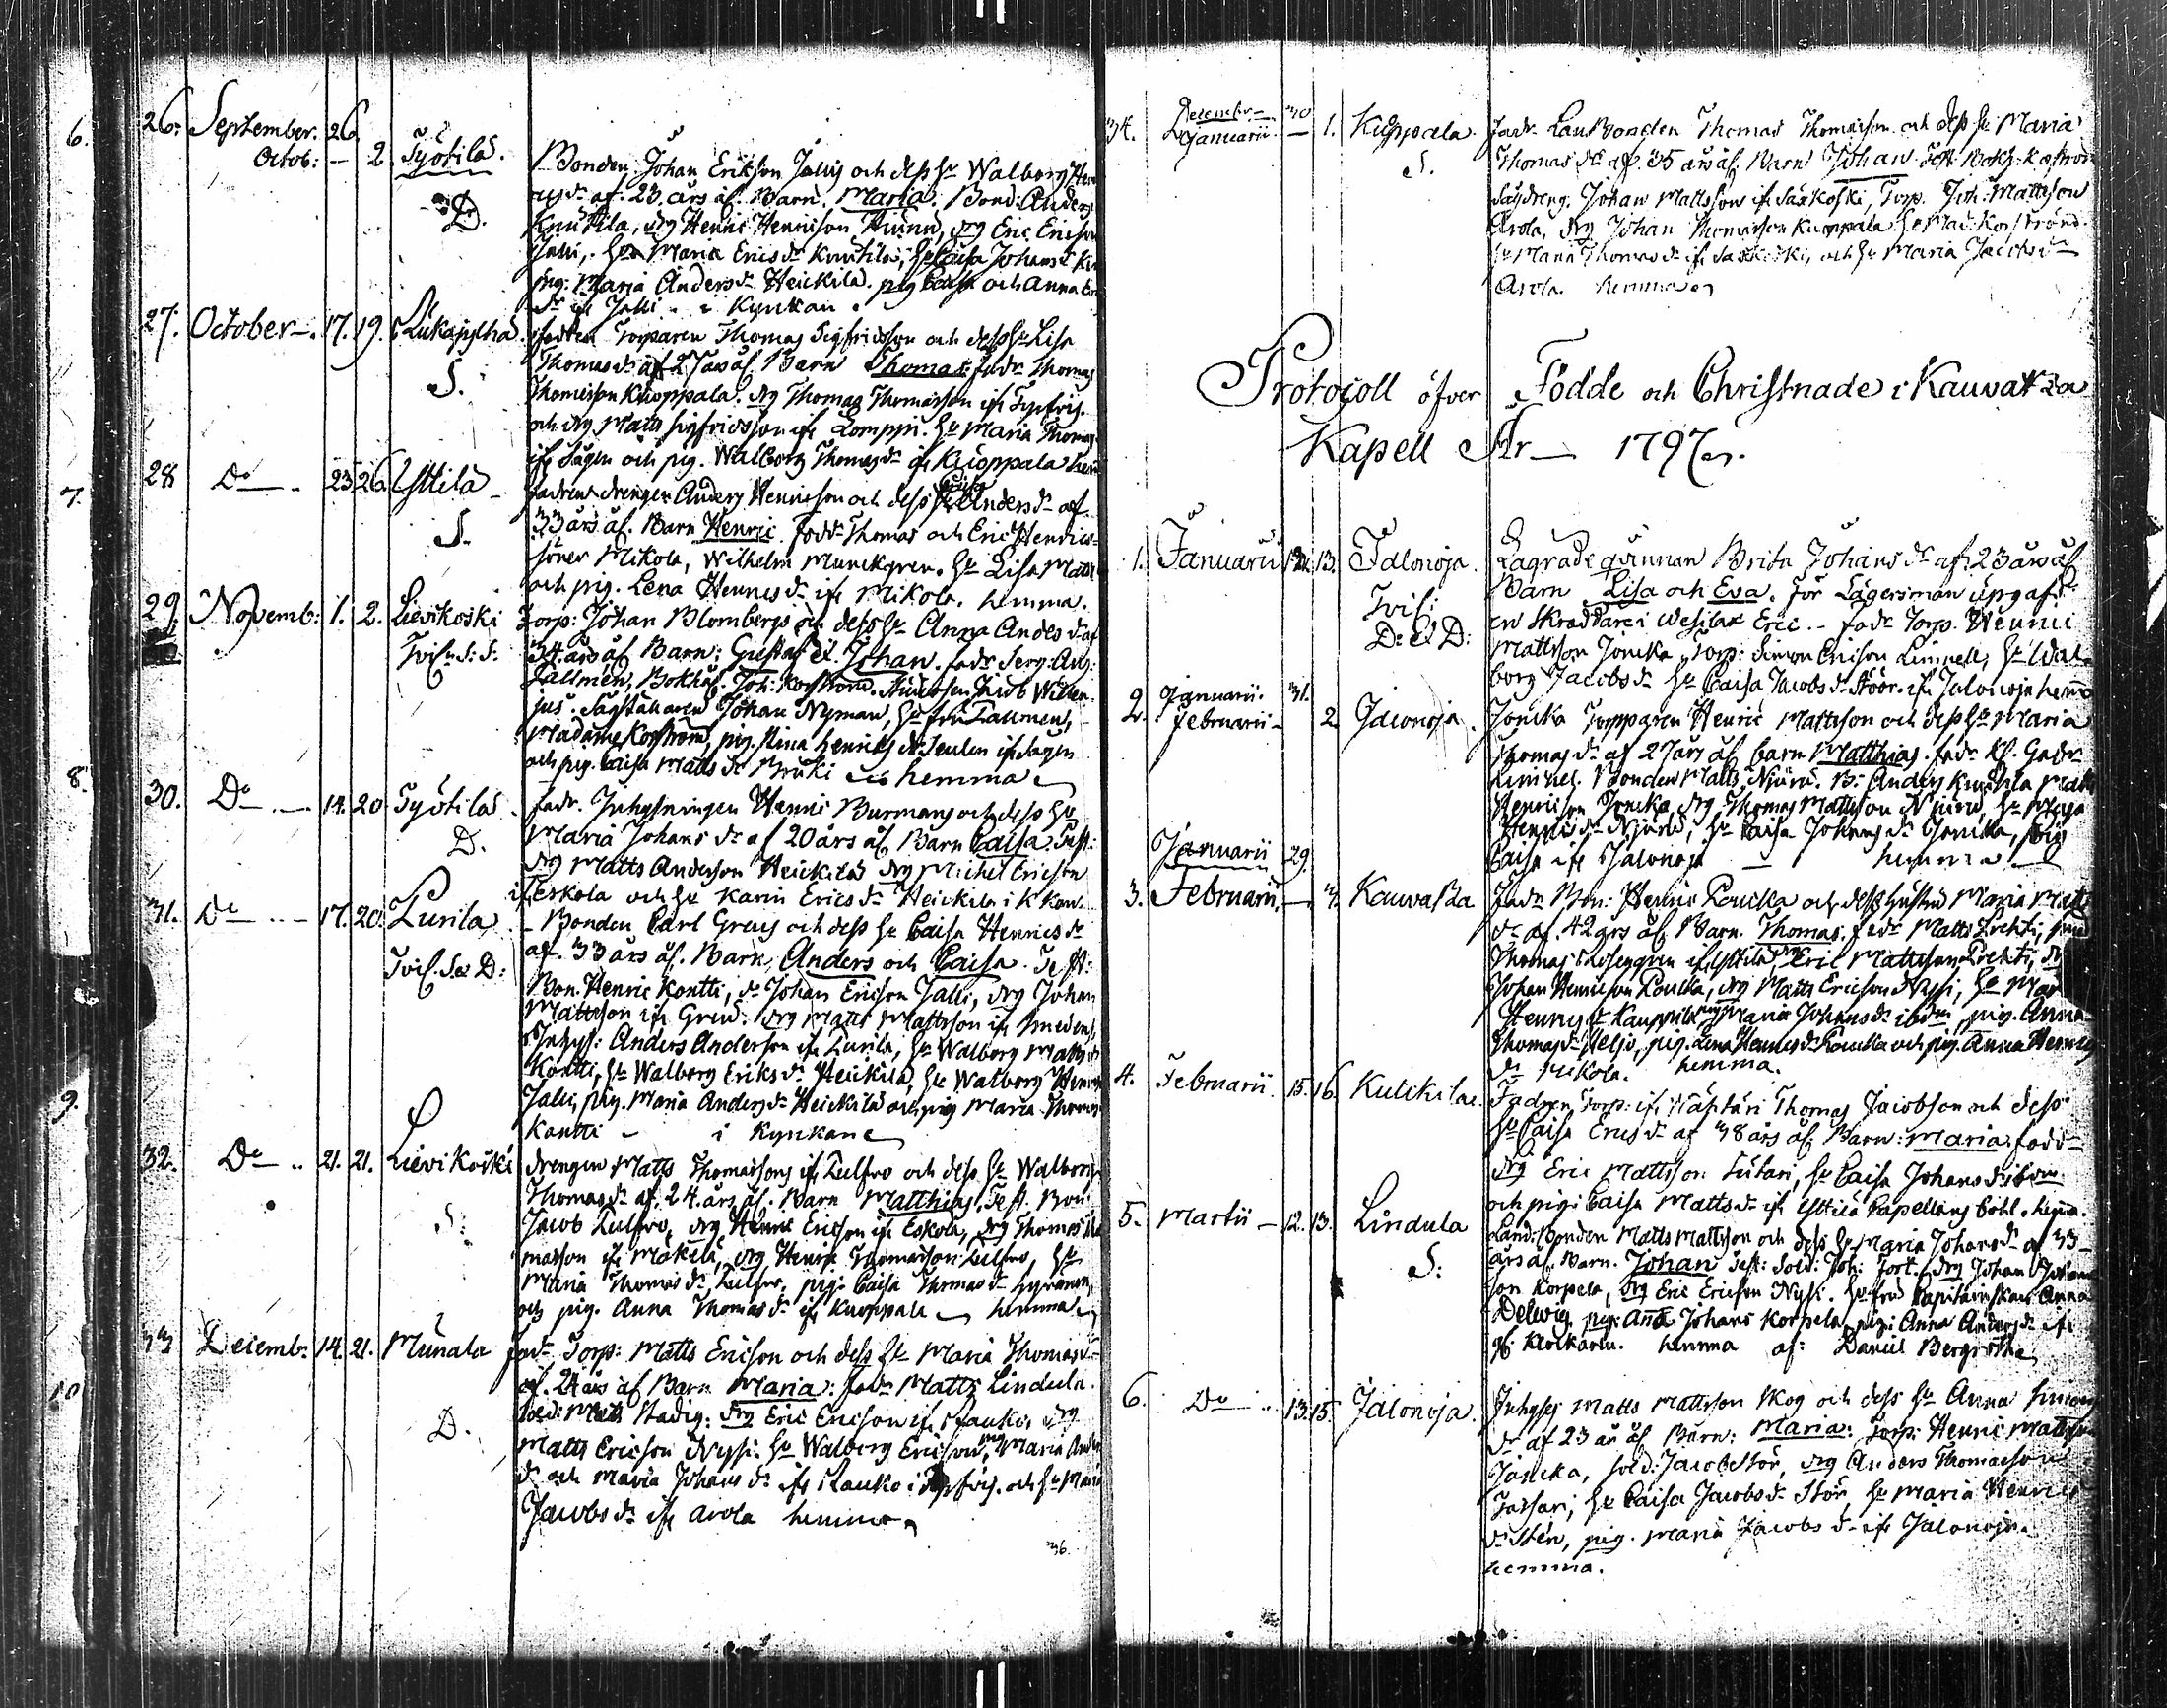 6.
26. September. 26.
Octob: — 2 Työtilä.
D.
Bonden Johan Erikson Jallis och dess Hu Walborg Hen
af 23 års ål. Barn. Maria. Bond. Anders
Knuttila, drg Henric Henricson, drg Eric Ericson
Jalli, Hu Maria Erics dr Knuttila, Hu Caisa Johans dr
pig: Maria Anders dr Heickilä. pig Caisa och Anna
dr ifr Jalli i Kyrkan.
27. October — 17. 19.
S.
Torparen Thomas Sigfridsson och dess Hu Lisa
Thomas dr af 27 års ål. Barn Thomas: fadr Thomas
Thomasson Kuoppala. drg Thomas Thomasson ifr
och drg Matts Sigfridsson ifr Lomppi. Hu Maria Thomas
ifr Sågen och pig. Walborg Thomas dr ifr Kuoppala
7.
28 Do — 25 26 Yttilä
S.
drengen Anders Henricson och dess Hu Anders dr af
33 års ål. Barn Henric. fadr Thomas och Eric Henrics-
söner Mikola, Wilhelm Munckgren. Hu Lisa Matts
och pig. Lena Henrics dr ifr Mikola. hemma.
29. Novemb: 1. 2. Lievikoski
S: S:
Torp: Johan Blombergs och dess Hu Anna Anders dr af
34 års ål Barn: Gustaf et Johan. fadr Serg: Aug:
Tallmen, Bokhål. Joh: Korström. Jacob Willen-
jus. Johan Nyman, Hu Tallmen,
Madame Korström, pig. Stina Henrics dr ifr Sågen
och pig. Caisa Matts dr hemma
8.
30. Do — 14. 20 Työtilä
D.
fadr. Inhysningen Henric Burmans och dess Hu
Maria Johans dr af 20 års ål Barn Caisa Test:
drg Matts Anderson Heickilä drg Michel Ericson
ifr Eskola och Hu Karin Erics dr Heickila i Kkan.
31. Do — 17. 20. Lurila
S. et D:
Bonden Carl Greus och dess Hu Caisa Henrics dr
af 33 års ål. Barn, Anders och Caisa. Test:
Bon. Henric Kontti, dr Johan Ericson Jalli, drg Johan
Mattsson ifr Greus. drg Matts Mattsson ifr Smedens,
Inhys: Anders Anderson ifr Lurila, Hu Walborg Matts dr
Kontti, Hu Walborg Eriks dr Heickilä, Hu Walborg Henr
Jalli, pig. Maria Anders dr Heickilä och pig Maria Thomas
Kontti — i Kyrkan
9.
32. Do .. 21. 21. Lievikoski
S:
drengen Matts Thomasons ifr Zulfro och dess Hu Walborg
Thomas dr af 24 års ål. Barn Matthias, Test. Bon:
Jacob Zulfro, drg Henric Ericson ifr Eskola, drg Thomas
masson ifr Mäkelä, drg Henric Thomasson Zulfro, Hu
Maria Thomas dr Zulfro, pig: Caisa Thomas dr
och pig. Anna Thomas dr ifr Kuoppala hemma
33 Decemb: 14. 21. Munala
10
D.
fadr Torp: Matts Ericson och dess Hu Maria Thomas dr
af 24 års ål Barn Maria: fadr Matts Lindula.
Sold: Matts Stadig: drg Eric Ericson ifr Rauko drg
Matts Ericson Nyssi. Hu Walborg Ericson, pig Maria Anders
dr och Maria Johans dr ifr Rauko i och Hu Maria
Jacobs dr ifr Arola hemma
36.
34. Decembr — 30
Januarii — 1. Kuppala.
S.
fadr Lan Bonden Thomas Thomasson och dess Hu Maria
Thomas dr af 35 års ål. Barn Johan Test: Bokh: Korström
Johan Mattsson ifr Saxkoski, Torp. Joh: Mattsson
Arola, drg Johan Thomasson Kuoppala Hu Mad: Korström
Hu Maria Thomas dr ifr Saxkoski, och Hu Maria Jacobs dr
Arola. hemma
Protocoll öfver Födde och Christnade i Kauvatza
Kapell År — 1797.
1. Januarii 12. 13. Jalonoja.
D: et D:
Lägrade qvinnan Brita Johans dr af 23 års ål
Barn Lisa och Eva. för Lägersman upgafs
en Skräddare i Wesilax Eric. — fadr Torp. Henric
Mattsson Jonika, Torp: Simon Ericson Linnell, Hu Wal-
borg Jacobs dr Hu Caisa Jacobs dr Stöör. ifr Jalonoja hemma
2. Januarii. 31.
Februarii — 2 Jalonoja.
Jonika Torpparen Henric Mattsson och dess Hu Maria
Thomas dr af 27 års ål barn Matthias. fadr
Bonden Matts Njurd. B: Anders Knuttila Matts
Henricson Jonika, drg Thomas Mattsson Njurd, Hu Maja
Henrics dr Njurd, Hu Caisa Johans dr Jonika, pig
Caisa ifr Jalonoja — hemma
Januarii 29.
3. Februarii. — 3. Kauvatza
fadr Bon: Henric Loucka och dess hustru Maria Matts
dr af 42 års ål. Barn. Thomas. fadr Matts
Thomas ifr Yttilä, drg Eric Mattsson
Johan Henricson Loucka, drg Matts Ericson Nyssi, Hu Mar
Henrics dr Kauppila pig Maria Johans dr ibdm, pig. Anna
Thomas dr pig. Lena Henrics dr Loucka och pig. Anna Henrics
dr Mikola. hemma.
4. Februarii 15. 16. Kulickila.
Fadren Torp: ifr Thomas Jacobson och dess
Hu Caisa Erics dr af 38 års ål. Barn: Maria: fadr
drg Eric Mattsson Sutari, Hu Caisa Johans dr ibdm
och pig: Caisa Matts dr ifr Yttilä Capellans bohl. hema.
5. Martii — 12. 13. Lindula
S:
Land: Bonden Matts Mattsson och dess Hu Maria Johans dr af 33
års ål Barn. Johan Test: Sold: Joh: Fort. drg Johan Johan-
son Korpela, drg Eric Ericson Nyssi. Hu fru Capitainskan Anna
Delwig, pig: Ana Johans Korpela, pig: Anna Anders dr ifr
Klockaren. hemma af: Daniel Bergroth
6. Do .. 13. 15. Jalonoja.
Inhyses Matts Mattsson Skog och dess Hu Anna Simons
dr af 23 års ål Barn: Maria: Torp: Henric Mattsson
Jonicka, Sold: Jacob Stör, drg Anders Thomasson
Hu Caisa Jacobs dr Stör, Hu Maria Henrics
dr Stén, pig. Maria Jacobs dr ifr Jalonoja.
hemma.